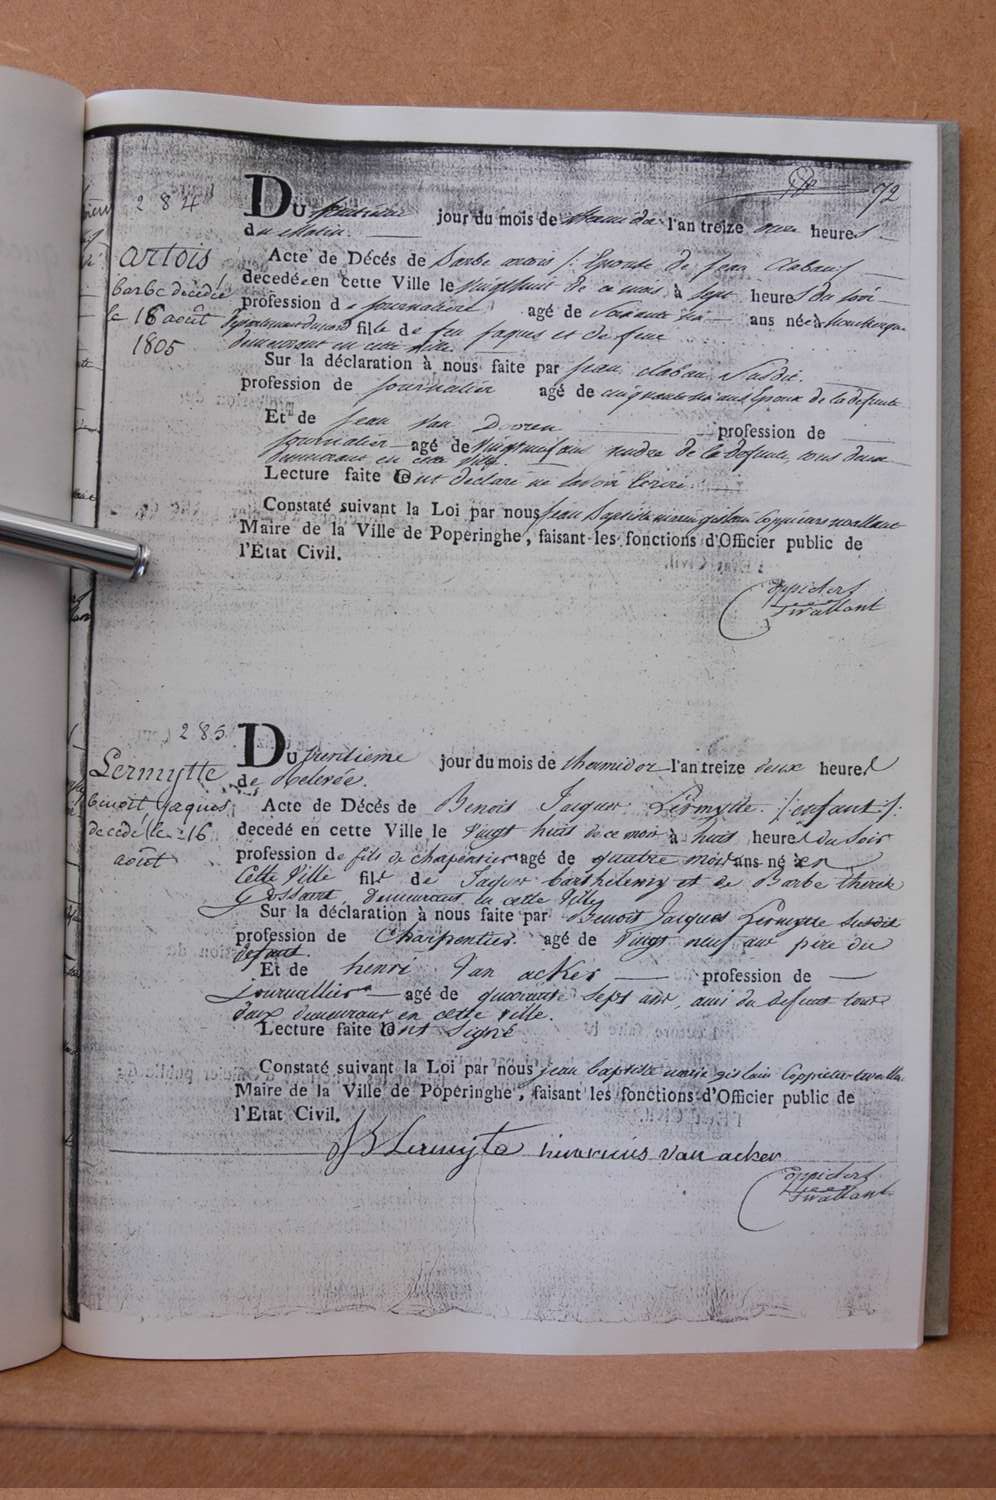 72
284
Du jour du mois de l'an treize heures
du Matin.
artois
barbe decedée
le 16 août
1805
Acte de Décés de Barbe artois /: Epouse de Jean Clabau
decedée en cette Ville le vingt huit de ce mois à sept heures du soir
profession de journaliere agé de soixante ans née à
fille de feu Jaques et de feue
demeurant en cette ville.
Sur la déclaration à nous faite par Jean Clabau susdit.
profession de journalier agé de cinquante ans Epoux de la defunte
Et de Jean van profession de
journalier agé de vingt neuf ans de la defunte, tous deux
demeurant en cette ville.
Lecture faite ont declaré ne savoir Ecrire.
Constaté suivant la Loi par nous Jean Baptiste marie gislain Coppieters wallant
Maire de la Ville de Poperinghe, faisant les fonctions d'Officier public de
l'Etat Civil.
Coppieters
twallant
285
Du trentieme jour du mois de thermidor l'an treize deux heures
de Relevée.
Lermytte
benoit, jaques,
decédé le 16
août
Acte de Décés de Benoit Jaques Lermytte. /: enfant :/
decedé en cette Ville le vingt huit de ce mois à huit heures du soir
profession de fils de charpentier agé de quatre mois ans né en
Cette Ville fils de Jaques barthelemy et de Barbe therese
Gossaert, demeurant en cette Ville
Sur la déclaration à nous faite par Benoit Jacques Lermytte susdit
profession de Charpentier agé de vingt neuf ans pere du
defunt.
Et de henri Van acker profession de
Journallier agé de quarante sept ans, ami du defunt tous
deux demeurant en cette ville.
Lecture faite ont signé
Constaté suivant la Loi par nous jean baptiste marie gislain Coppieters
Maire de la Ville de Poperinghe, faisant les fonctions d'Officier public de
l'Etat Civil.
JB Lermyte henricus van acker
Coppieters
twallant